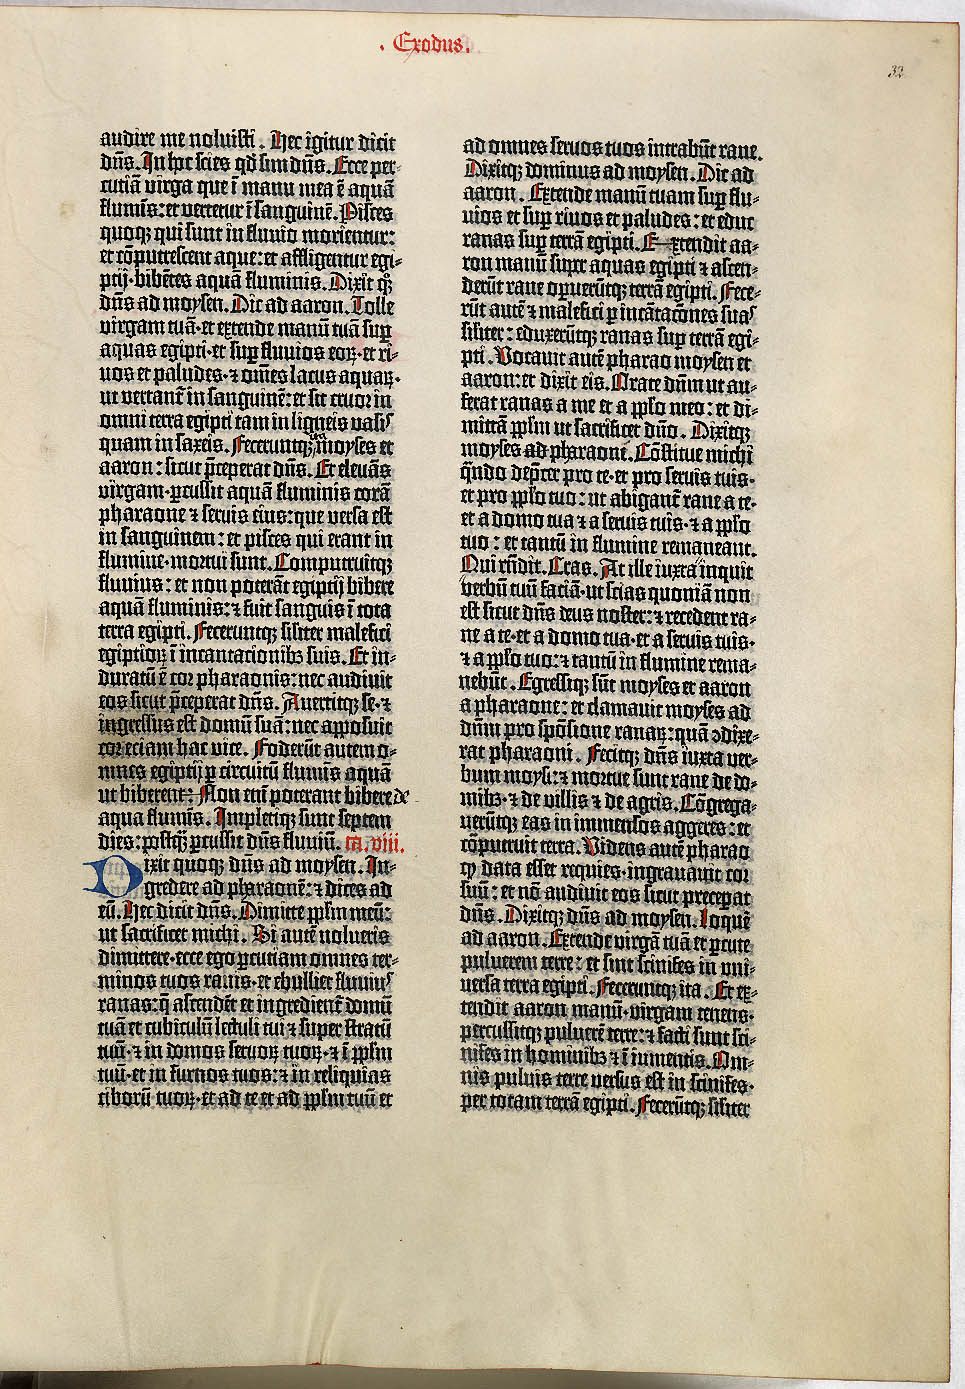 . Exodus.
32
audire me noluisti . Hec igitur dicit
dn̄s. In hoc scies qd̄ sim dn̄s. Ecce per-
cutiā virga que ī manu mea ē aquā
flumīs: et vertetur ī sanguinē. Pisces
quoqꝫ qui sunt in fluvio morientur:
et cōputrescent aque: et affligentur egi-
ptij · bibētes aquā fluminis. Dixit qꝫ
dn̄s ad moysen. Dic ad aaron. Tolle
virgam tuā · et extende manū tuā sup̄
aquas egipti · et sup̄ fluvios eoꝝ · et ri-
vos et paludes · ⁊ om̄es lacus aquaꝝ ·
ut vertant̄ in sanguinē: et sit cruor in
omni terra egipti tam in ligneis vasis
quam in saxeis. Feceruntqꝫ moyses et
aaron: sicut p̄ceperat dn̄s. Et elevās
virgam · ꝑcussit aquā fluminis corā
pharaone ⁊ servis eius: que versa est
in sanguinem: et pisces qui erant in
flumine · mortui sunt. Computruitqꝫ
fluvius: et non poterāt egiptij bibere
aquā fluminis: ⁊ fuit sanguis ī tota
terra egipti. Feceruntqꝫ sil̄iter malefici
egiptioꝝ ī incantacionibꝫ suis. Et in-
duratū ē cor pharaonis: nec audivit
eos sicut p̄ceperat dn̄s. Avertitqꝫ se · ⁊
ingressus est domū suā: nec apposuit
cor eciam hac vice. Foderūt autem o-
mnes egiptij ꝑ circuitū flumīs aquā
ut biberent. Non em̄ poterant bibere de
aqua flumīs. Impletiqꝫ sunt septem
dies: postqꝫ̄ ꝑcussit dn̄s fluviū. ca. viii.
Dixit quoqꝫ dn̄s ad moysen. In-
gredere ad pharaonē: ⁊ dices ad
eū. Hec dicit dn̄s. Dimitte pp̄lm meū:
ut sacrificet michi. Si autē nolueris
dimittere · ecce ego ꝑcutiam omnes ter-
minos tuos ranis · et ebulliet fluvius
ranas: q̄ ascendēt et ingredient̄ domū
tuā et cubiculū lectuli tui ⁊ super stratū
tuū · ⁊ in domos servoꝝ tuoꝝ · ⁊ ī pp̄lm
tuū · et in furnos tuos: ⁊ in reliquias
ciborū tuoꝝ · et ad te et ad pp̄lm tuū et
ad omnes servos tuos intrabūt rane.
Dixitqꝫ dominus ad moysen. Dic ad
aaron . Extende manū tuam sup̄ flu-
vios et sup̄ rivos et paludes: et educ
ranas sup̄ terrā egipti. Extendit aa-
ron manū super aquas egipti ⁊ ascen-
derūt rane operuerūtqꝫ terrā egipti. Fece-
rūt autē ⁊ malefici ꝑ incātacōnes suas
sil̄iter: eduxerūtqꝫ ranas sup̄ terrā egi-
pti. Vocavit autē pharao moysen et
aaron: et dixit eis. Orate dn̄m ut au-
ferat ranas a me et a pp̄lo meo: et di-
mittā pp̄lm ut sacrificet dn̄o. Dixitqꝫ
moyses ad pharaonē. Cōstitue michi
qn̄do dep̄cer pro te · et pro servis tuis ·
et pro pp̄lo tuo: ut abigant̄ rane a te ·
et a domo tua ⁊ a servis tuis · ⁊ a pp̄lo
tuo: et tantū in flumine remaneant.
Qui rn̄dit. Cras. At ille iuxta inquit
verbū tuū faciā · ut scias quoniā non
est sicut dn̄s deus noster: ⁊ recedent ra-
ne a te · et a domo tua · et a servis tuis ·
⁊ a pp̄lo tuo: ⁊ tantū in flumine rema-
nebūt. Egressiqꝫ sūt moyses et aaron
a pharaone: et clamavit moyses ad
dn̄m pro spōsione ranaꝝ: quā ɔdixe-
rat pharaoni. Fecitqꝫ dn̄s iuxta ver-
bum moysi: ⁊ mortue sunt rane de do-
mibꝫ · ⁊ de villis ⁊ de agris. Cōgrega-
verūtqꝫ eas in immensos aggeres: et
cōputruit terra. Videns autē pharao
qꝫ data esset requies · ingravavit cor
suū: et nō audivit eos sicut preceperat
dn̄s. Dixitqꝫ dn̄s ad moysen. Loquē
ad aaron. Extende virgā tuā et ꝑcute
pulverem terre: et sint scinifes in uni-
versa terra egipti. Feceruntqꝫ ita. Et ex-
tendit aaron manū · virgam tenens ·
percussitqꝫ pulverē terre: ⁊ facti sunt sci-
nifes in hominibꝫ ⁊ ī iumentis. Om-
nis pulvis terre versus est in scinifes ·
per totam terrā egipti. Fecerūtqꝫ sil̄iter